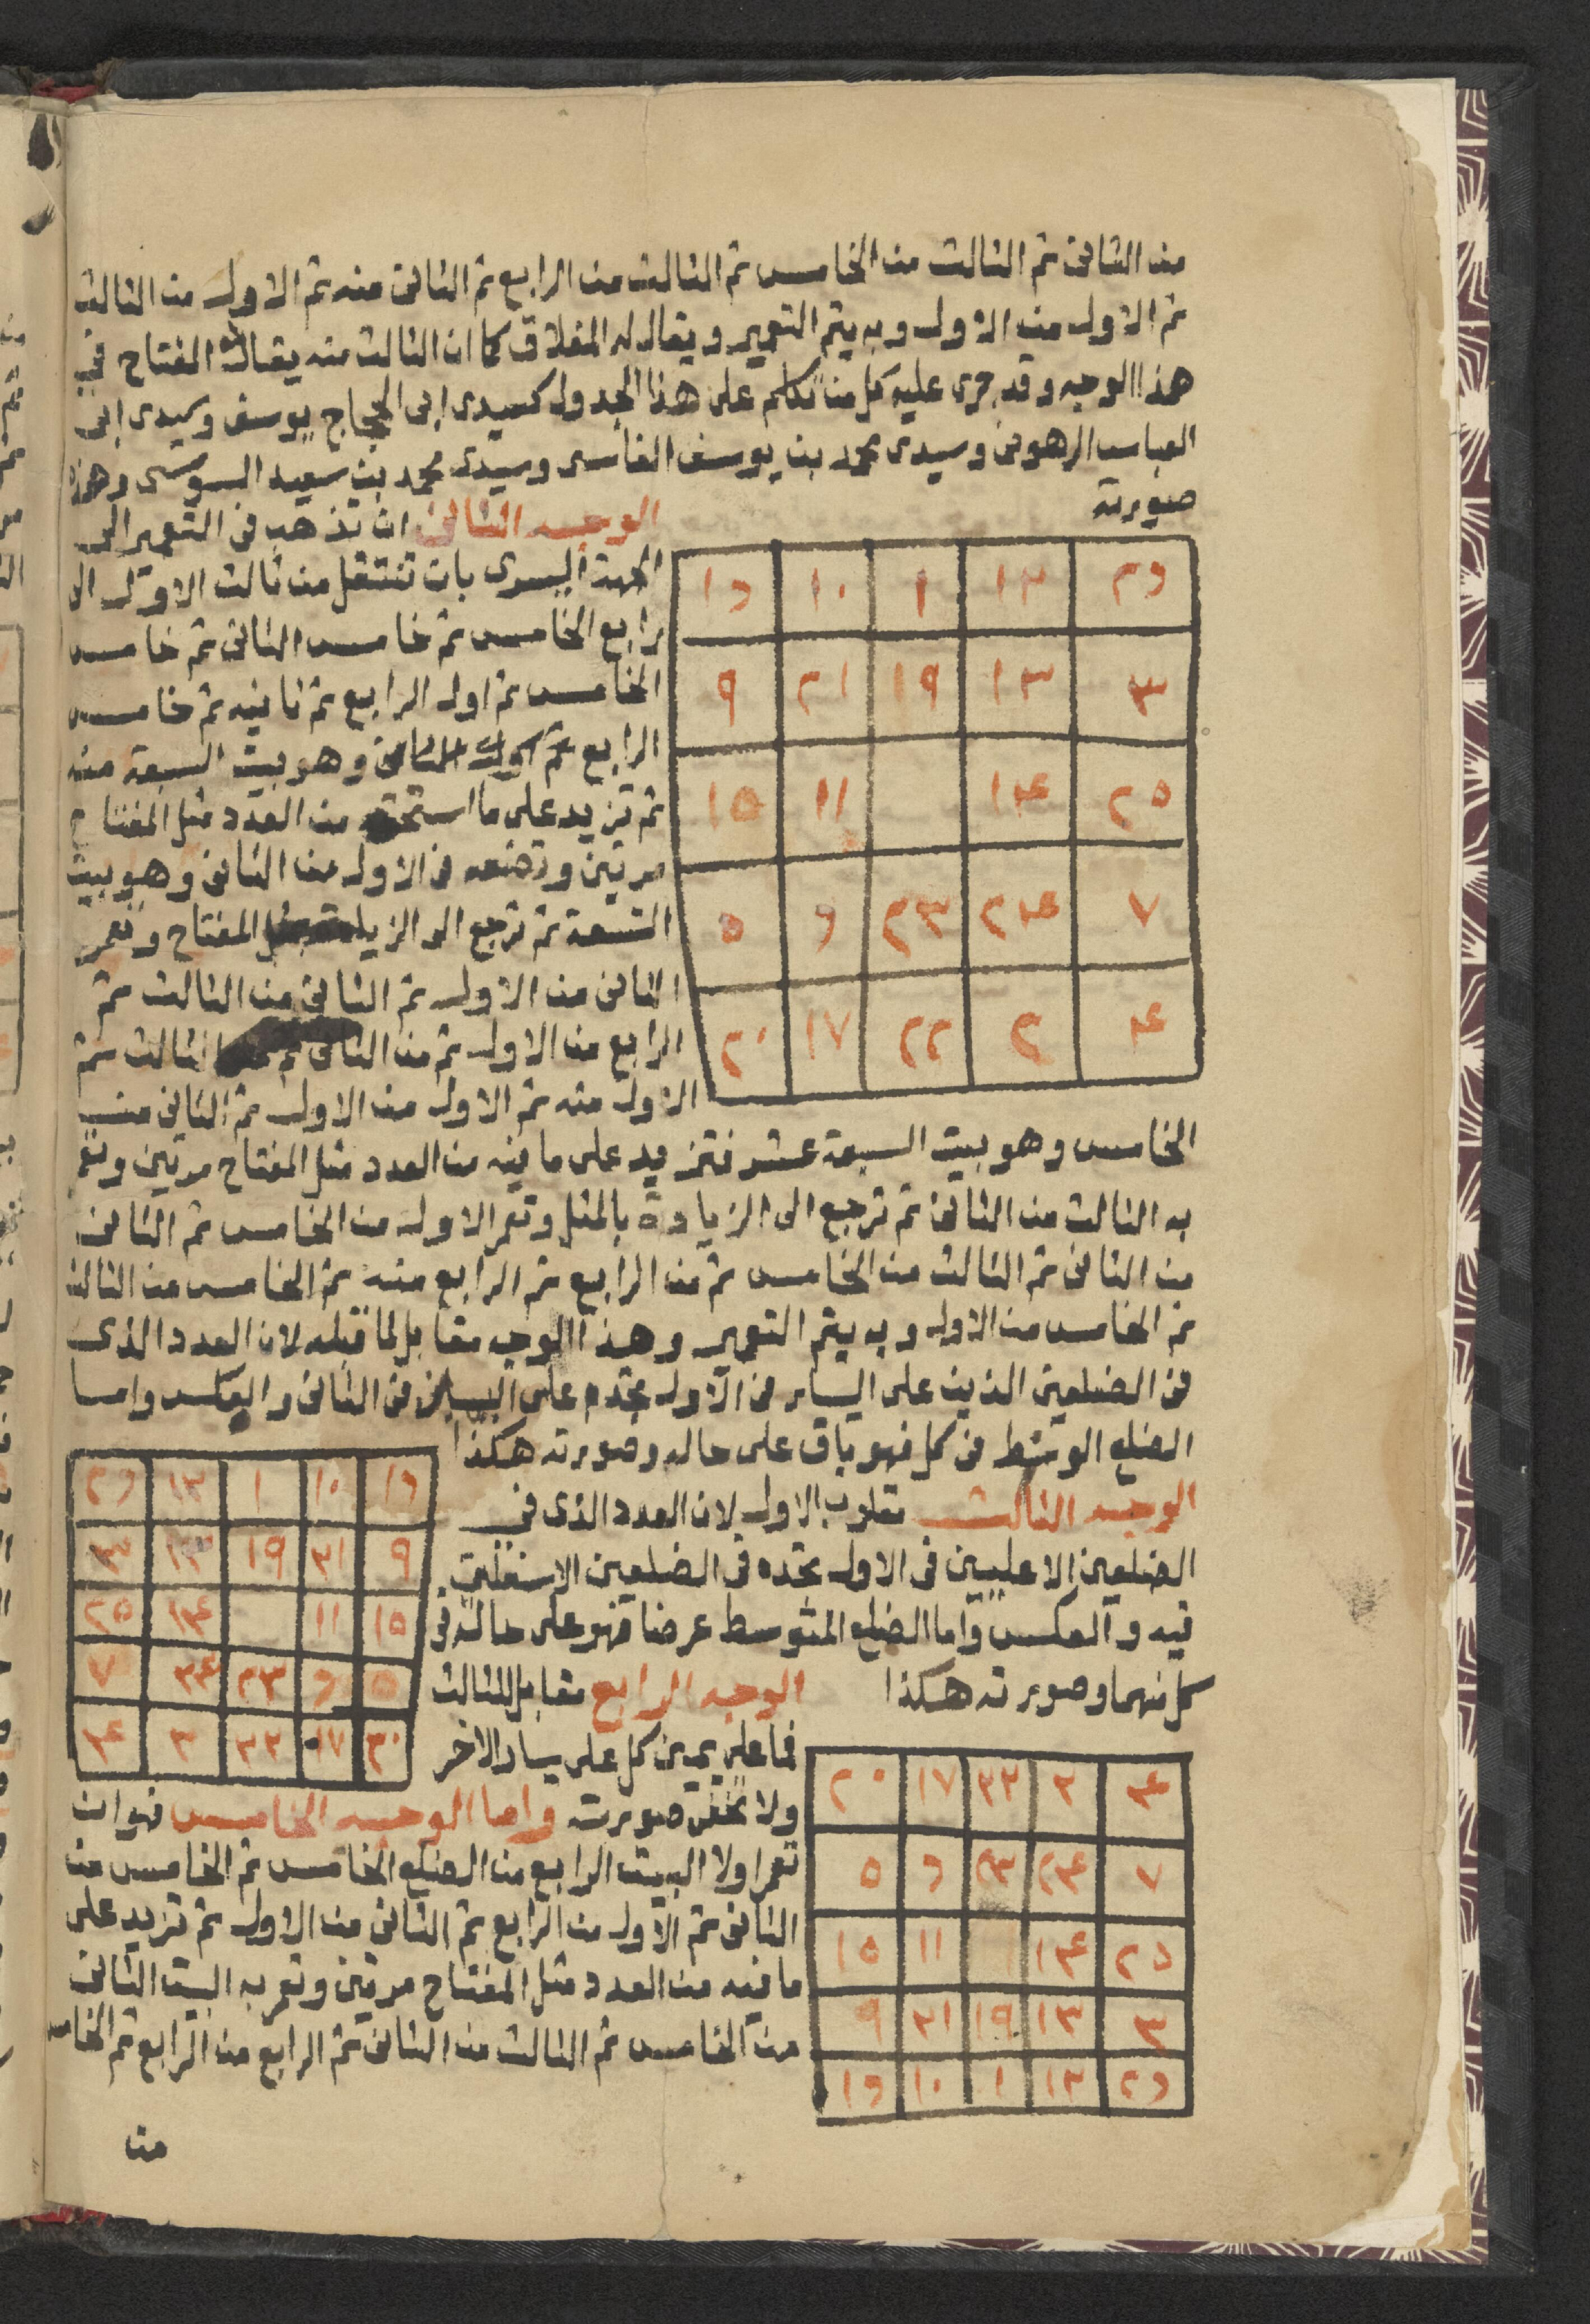 من الثاني ثم الثالث من الخامس ثم الثالث من الرابع ثم الثاني منه ثم الاول من الثالث
ثم الاول من الاول وبه يتم التعمير ويقال له المغلاق كما ان الثالث منه يقال له المفتاح في
هذا الوجه وقد جرى عليه كل من تكلم على هذا الجدول كسيدى ابى الحجاج يوسف وسيدى ابى
العباس الرهونى وسيدى محمد بن يوسف الفاسى وسيدى محمد بن سعيد السوسى وهذه
صورته
الوجه الثانى ان تذهب فى التعمير الى
الجهة اليسرى بان تنتقل من ثالث الاول الى
رابع الخامس ثم خامس الثانى ثم خامس
الخامس ثم اول الرابع ثم ثانيه ثم خامس
الرابع ثم وهو بيت السبعة منه
ثم تزيد على ما استحقه من العدد مثل المفتاح
مرتين وتضعه فى الاول من الثانى وهو بيت
التسعة ثم ترجع الى الزيادة بمثل المفتاح وتعمر
الثانى من الاول ثم الثانى من الثالث ثم
الرابع من الاول ثم من الثانى ثم من الثالث ثم
الاول منه ثم الاول من الاول ثم الثانى من
الخامس وهو بيت السبعة عشر فتزيد على ما فيه من العدد مثل المفتاح مرتين وتعمر
به الثالث من الثانى ثم ترجع الى الزيادة بالمثل وتعمر الاول من الخامس ثم الثانى
من الثانى ثم الثالث من الخامس ثم من الرابع ثم الرابع منه ثم الخامس من الثالث
ثم الخامس من الاول وبه يتم التعمير وهذا الوجه مقابل لما قبله لان العدد الذى
فى الضلعين الذين على اليسار فى الاول تجده على اليمين فى الثانى والعكس واما
الضلع الوسط فى كل فهو باق على حاله وصورته هكذا
٢٦ ١٢ ١ ١٠ ١٦
٣ ١٣ ١٩ ٢١ ٩
٢٥ ١٤ ١١ ١٥
٧ ٢٤ ٢٣ ٦ ٥
٤ ٢ ٢٢ ١٧ ٢٠
الوجه الثالث مقلوب الاول لان العدد الذى فى
الضلعين الاعليين فى الاول تجده فى الضلعين الاسفلين
فيه والعكس واما الضلع المتوسط عرضا فهو على حاله فى
كل منهما وصورته هكذا
١٦ ١٠ ١ ١٢ ٢٦
٩ ٢١ ١٩ ١٣ ٣
١٥ ١١ ١٤ ٢٥
٥ ٦ ٢٣ ٢٤ ٧
٢٠ ١٧ ٢٢ ٢ ٤
الوجه الرابع مقابل للثالث
فما على يمين كل على يسار الاخر
ولا تخفى صورته واما الوجه الخامس فهو ان
تعمر اولا البيت الرابع من الضلع الخامس ثم الخامس من
الثانى ثم الاول من الرابع ثم الثانى من الاول ثم تزيد على
ما فيه من العدد مثل المفتاح مرتين وتعمر به البيت الثانى
من الخامس ثم الثالث من الثانى ثم الرابع من الرابع ثم الخامس
٤ ٢ ٢٢ ١٧ ٢٠
٧ ٢٤ ٢٣ ٦ ٥
٢٥ ١٤ ١١ ١٥
٣ ١٣ ١٩ ٢١ ٩
٢٦ ١٢ ١ ١٠ ١٦
من